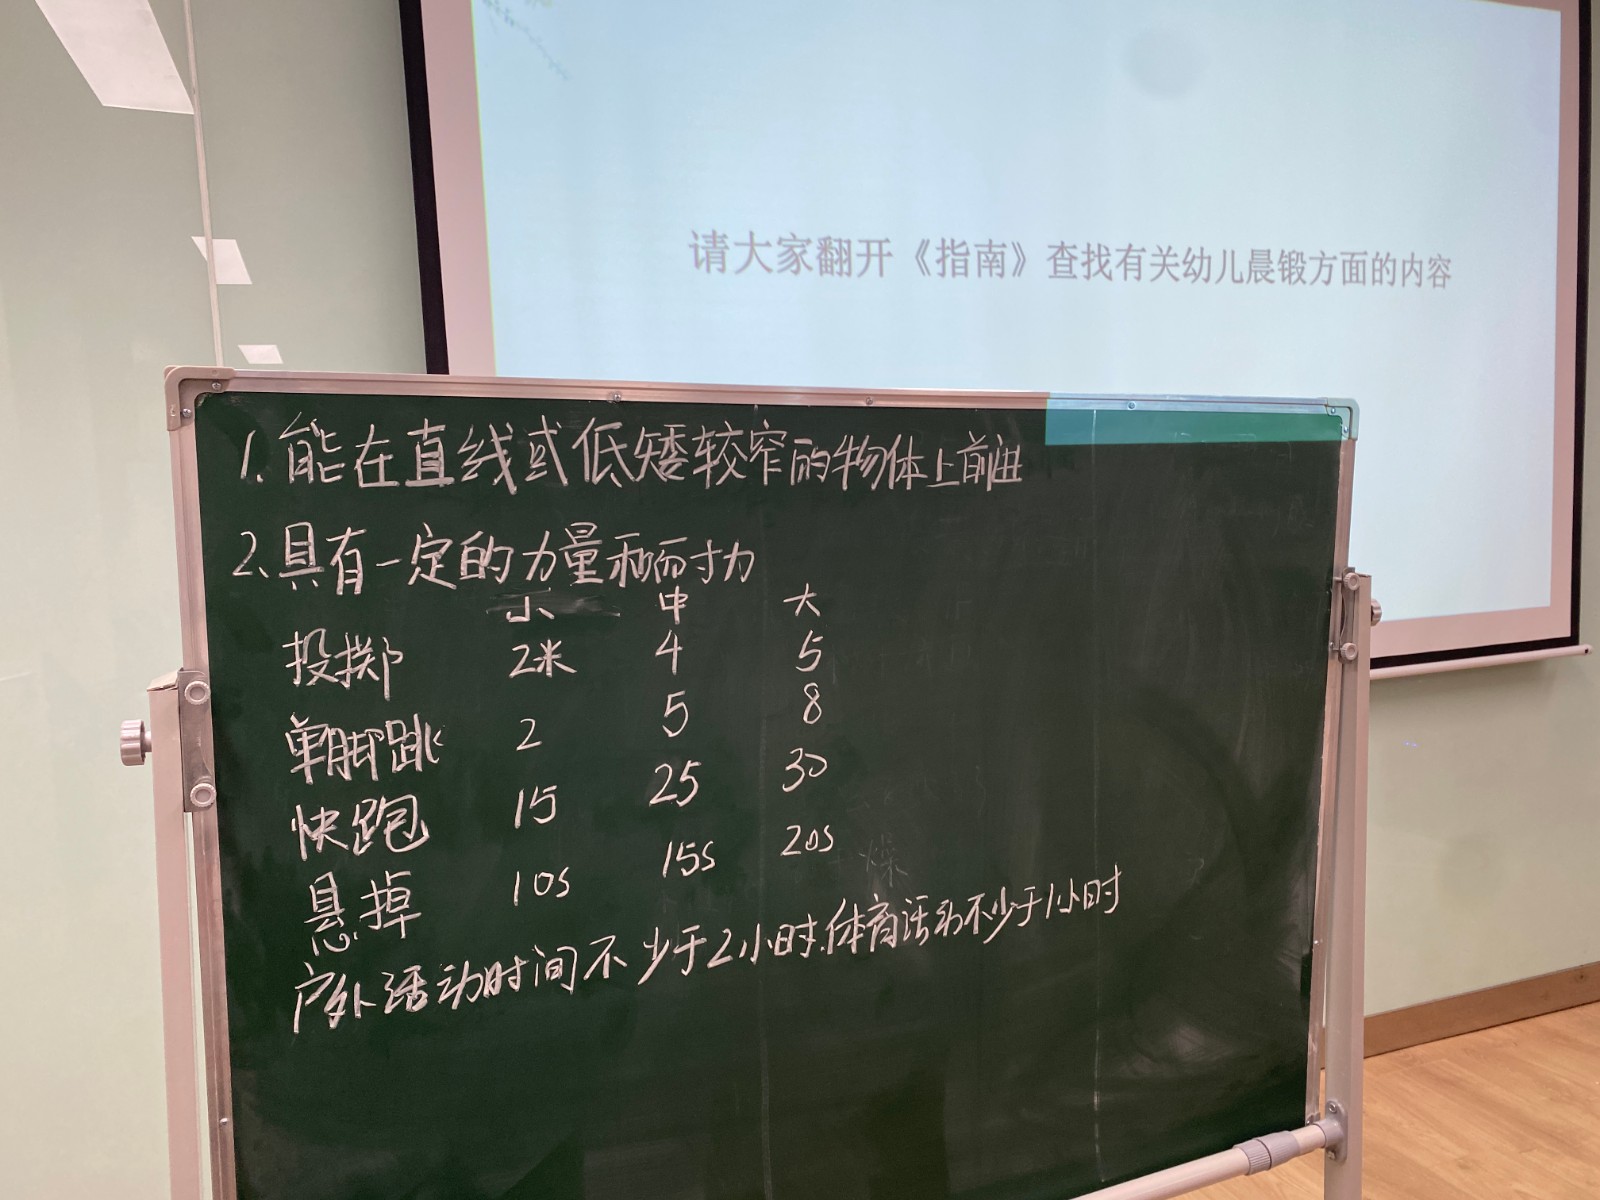 请大家翻开《指南》查找有关幼儿晨锻方面的内容
1.能在直线或低矮较窄的物体上前进
2、具有一定的力量和耐力
小 中 大
投掷 2米 4 5
单脚跳 2 5 8
快跑 15 25 30
悬掉 10s 15s 20s
户外活动时间不少于2小时.体育活动不少于1小时